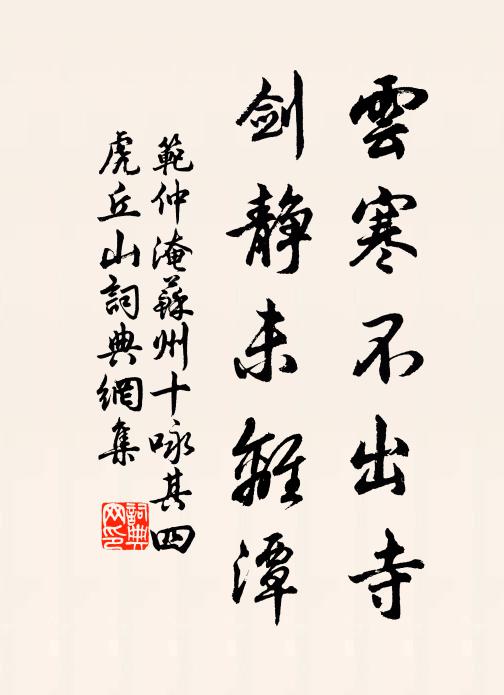 雲寒不出寺
劍靜未離潭
範仲淹蘇州十咏其四
虎丘山詞典網集
詞典
网印